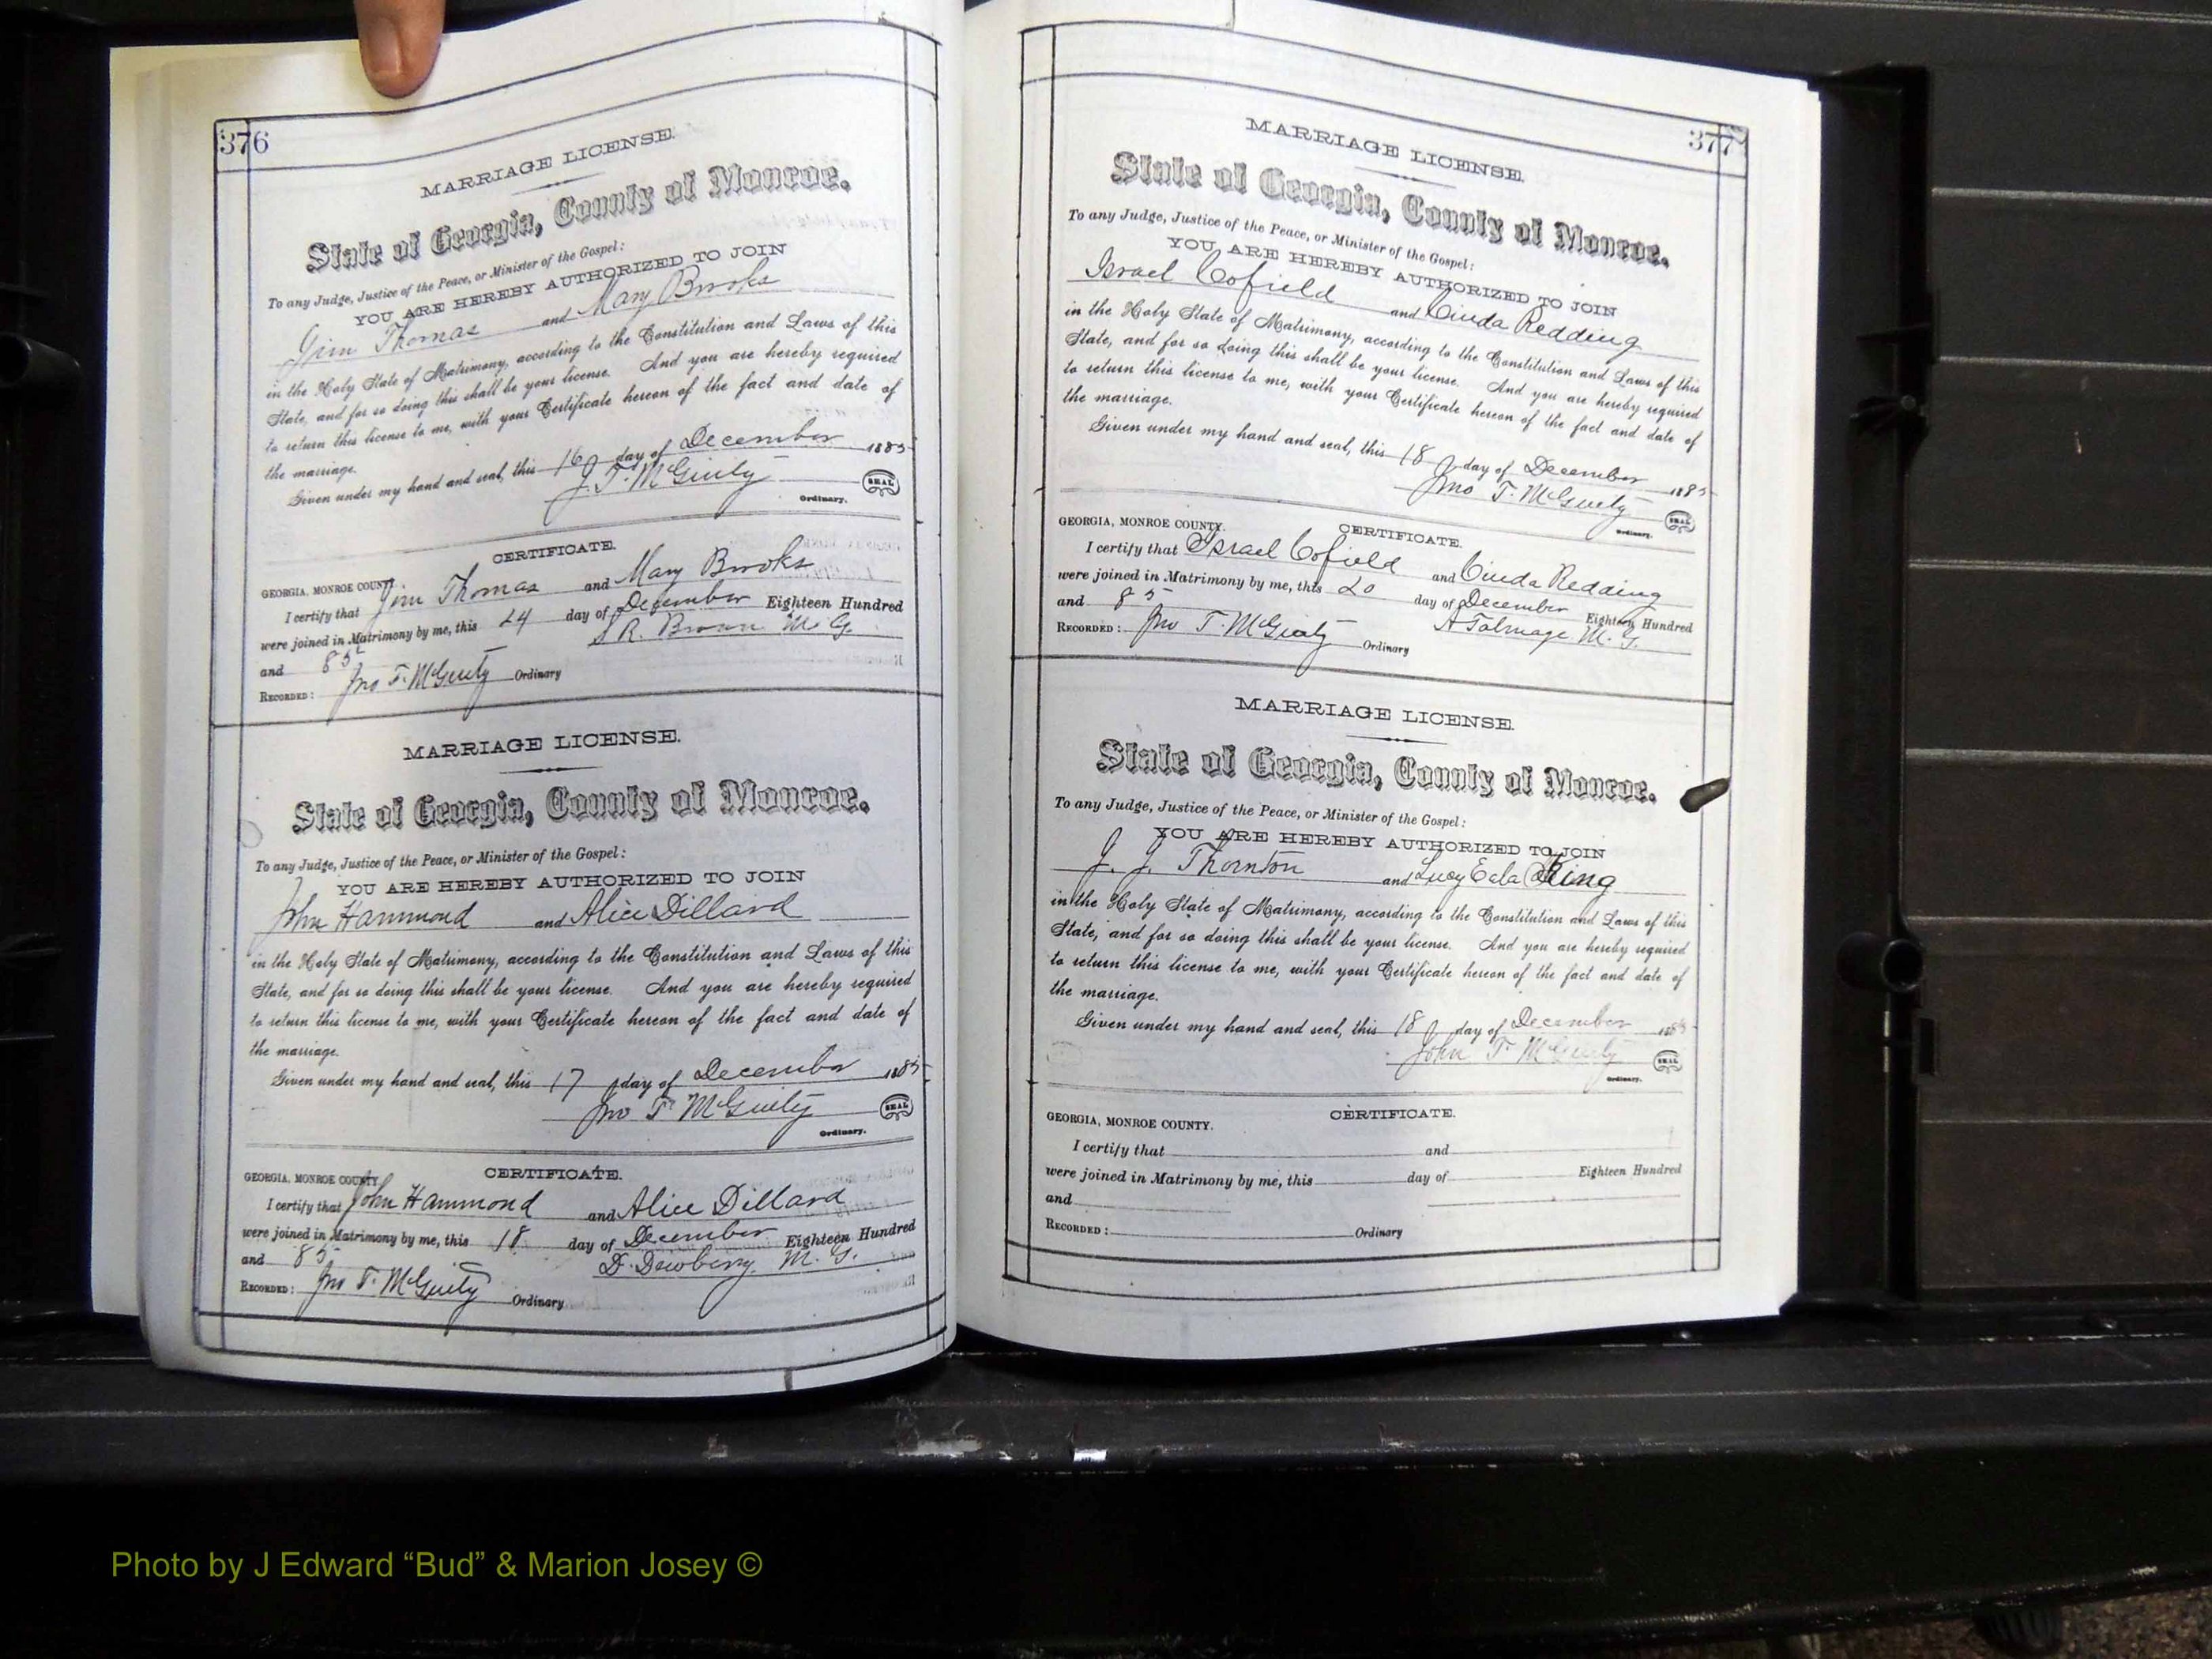 376
MARRIAGE LICENSE.
State of Georgia, County of Monroe.
To any Judge, Justice of the Peace, or Minister of the Gospel:
YOU ARE HEREBY AUTHORIZED TO JOIN
Jim Thomas and Mary Brooks
in the Holy State of Matrimony, according to the Constitution and Laws of this
State, and for so doing this shall be your license. And you are hereby required
to return this license to me, with your Certificate hereon of the fact and date of
the marriage.
Given under my hand and seal, this 16 day of December 1885
J. T. McGinty SEAL
Ordinary.
CERTIFICATE.
GEORGIA, MONROE COUNTY.
I certify that Jim Thomas and Mary Brooks
were joined in Matrimony by me, this 24 day of December Eighteen Hundred
and 85 S R. Brown M. G.
RECORDED: Jno T. McGinty Ordinary
MARRIAGE LICENSE.
State of Georgia, County of Monroe.
To any Judge, Justice of the Peace, or Minister of the Gospel:
YOU ARE HEREBY AUTHORIZED TO JOIN
John Hammond and Alice Dillard
in the Holy State of Matrimony, according to the Constitution and Laws of this
State, and for so doing this shall be your license. And you are hereby required
to return this license to me, with your Certificate hereon of the fact and date of
the marriage.
Given under my hand and seal, this 17 day of December 1885
Jno T McGinty SEAL
Ordinary.
CERTIFICATE.
GEORGIA, MONROE COUNTY.
I certify that John Hammond and Alice Dillard
were joined in Matrimony by me, this 18 day of December Eighteen Hundred
and 85 D. Dewberry M. G.
RECORDED: Jno T. McGinty Ordinary
377
MARRIAGE LICENSE.
State of Georgia, County of Monroe.
To any Judge, Justice of the Peace, or Minister of the Gospel:
YOU ARE HEREBY AUTHORIZED TO JOIN
Israel Cofield and Cinda Redding
in the Holy State of Matrimony, according to the Constitution and Laws of this
State, and for so doing this shall be your license. And you are hereby required
to return this license to me, with your Certificate hereon of the fact and date of
the marriage.
Given under my hand and seal, this 18 day of December 1885
Jno T. McGinty SEAL
Ordinary.
CERTIFICATE.
GEORGIA, MONROE COUNTY.
I certify that Israel Cofield and Cinda Redding
were joined in Matrimony by me, this 20 day of December Eighteen Hundred
and 85 A Talmage M. G.
RECORDED: Jno T. McGinty Ordinary
MARRIAGE LICENSE.
State of Georgia, County of Monroe.
To any Judge, Justice of the Peace, or Minister of the Gospel:
YOU ARE HEREBY AUTHORIZED TO JOIN
J. J. Thornton and Lucy King
in the Holy State of Matrimony, according to the Constitution and Laws of this
State, and for so doing this shall be your license. And you are hereby required
to return this license to me, with your Certificate hereon of the fact and date of
the marriage.
Given under my hand and seal, this 18 day of December 1885
John T McGinty SEAL
Ordinary.
CERTIFICATE.
GEORGIA, MONROE COUNTY.
I certify that and
were joined in Matrimony by me, this day of Eighteen Hundred
and
RECORDED: Ordinary
Photo by J Edward “Bud” & Marion Josey ©